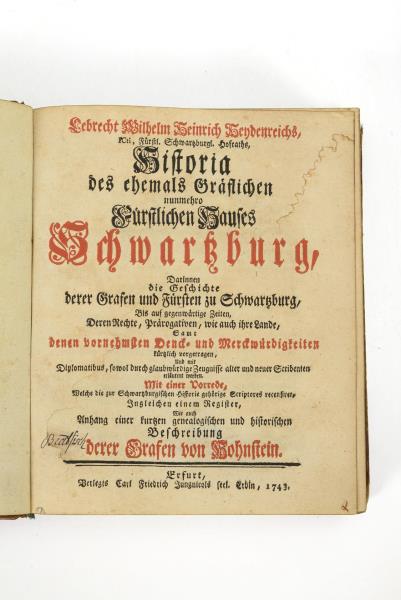 Lebrecht Wilhelm Heinrich Heydenreichs,
Fürstl. Schwartzburgl. Hofraths,
Historia
des ehemals Gräflichen
nunmehro
Fürstlichen Hauses
Schwartzburg,
Darinnen
die Geschichte
derer Grafen und Fürsten zu Schwartzburg,
Bis auf gegenwärtige Zeiten,
Deren Rechte, Prärogativen, wie auch ihre Lande,
Samt
denen vornehmsten Denck- und Merckwürdigkeiten
kürtzlich vorgetragen,
Und mit
Diplomatibus, sowol durch glaubwürdige Zeugnisse alter und neuer Scribenten
erläutert werden.
Mit einer Vorrede,
Welche die zur Schwartzburgischen Historie gehörige Scriptores recensiret,
Ingleichen einem Register,
Wie auch
Anhang einer kurtzen genealogischen und historischen
Beschreibung
derer Grafen von Hohnstein.
Erfurt,
Verlegts Carl Friedrich Jungnicols seel. Erbin, 1743.